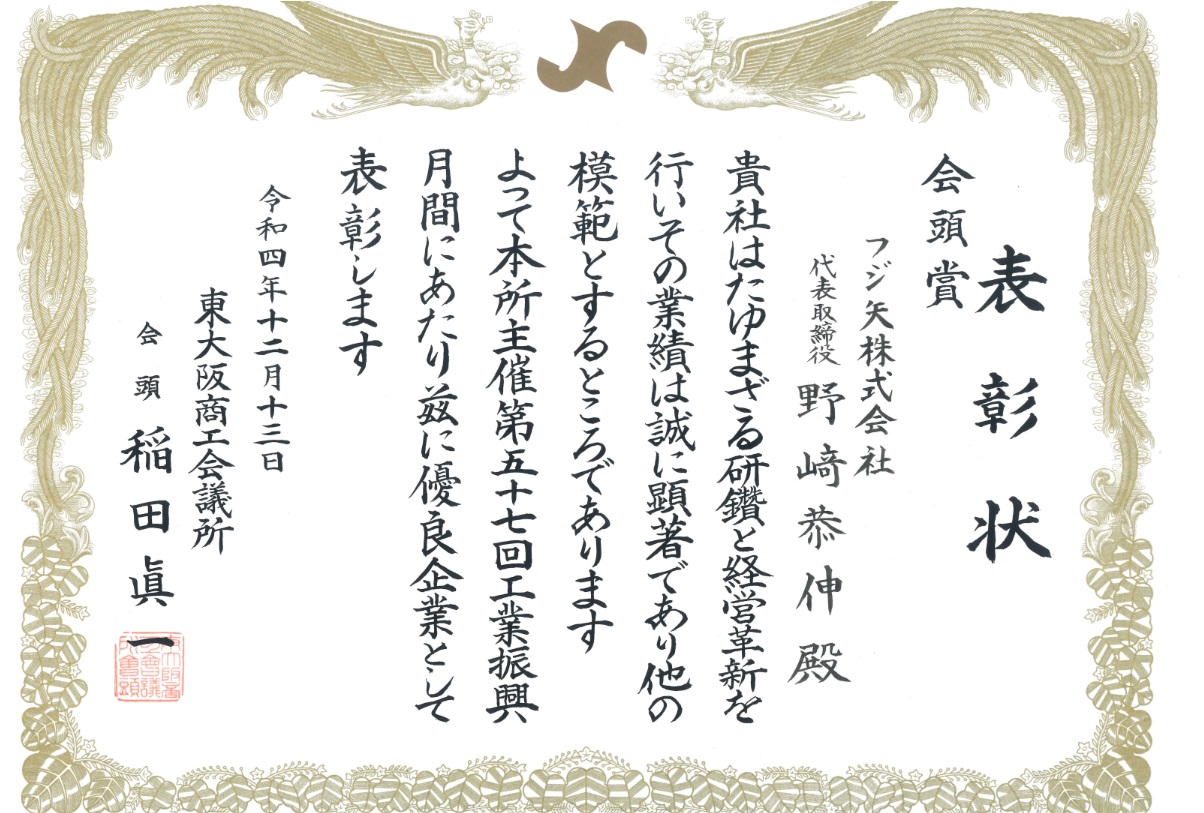 表彰状
会頭賞
フジ矢株式会社
代表取締役 野﨑恭伸殿
貴社はたゆまざる研鑽と経営革新を
行いその業績は誠に顕著であり他の
模範とするところであります
よって本所主催第五十七回工業振興
月間にあたり茲に優良企業として
表彰します
令和四年十二月十三日
東大阪商工会議所
会頭 稲田眞一